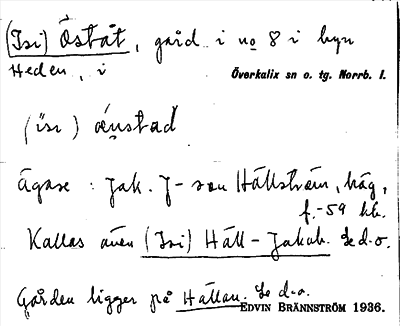 (Isi) Öståt, gård i no 8 i byn
Heden, i Överkalix sn o. tg. Norrb. l.
Ägare: Jak. J-son Hällström, häg,
f.-59 kb.
Kallas även (Isi) Häll-Jakob. Se d.o.
Gården ligger på Hällan. Se d.o.
EDVIN BRÄNNSTRÖM 1936.